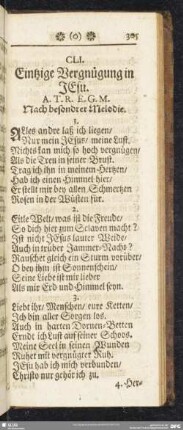 ❀ (o) ❀ 305
CLI.
Eintzige Vergnügung in
JEsu.
A. T. R. E. G. M.
Nach besondrer Melodie.
1.
Alles andre laß ich liegen/
Nur mein JEsus/ meine Lust.
Nichts kan mich so hoch vergnügen/
Als die Treu in seiner Brust.
Trag ich ihn in meinem Hertzen/
Hab ich einen Himmel hier/
Er stellt mir bey allen Schmertzen
Rosen in der Wüsten für.
2.
Eitle Welt/ was ist die Freude/
So dich hier zum Sclaven macht?
Ist nicht JEsus lauter Weide/
Auch in trüber Jammer-Nacht?
Rauschet gleich ein Sturm vorüber/
O bey ihm ist Sonnenschein/
Seine Liebe ist mir lieber
Als mir Erd und Himmel seyn.
3.
Liebt ihr/ Menschen/ eure Ketten/
Ich bin aller Sorgen los.
Auch in harten Dornen-Betten
Ernde ich Lust auf seiner Schoos.
Meine Seel in seinen Wunden
Ruhet mit vergnügter Ruh.
JEsu hab ich mich verbunden/
Christo nur gehör ich zu.
4. Her-